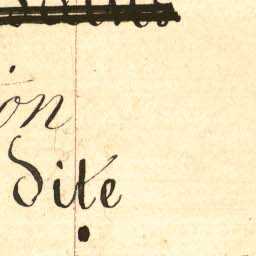 ón
dite